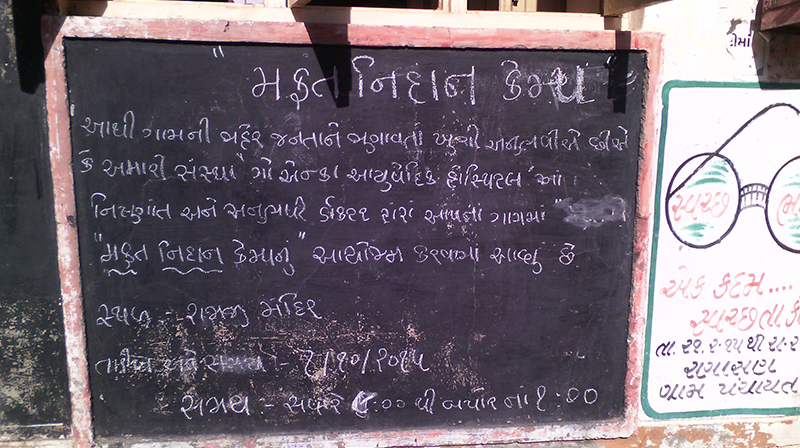 "મફત નિદાન કેમ્પ"
આથી ગામની જાહેર જનતાને જણાવતા ખુશી અનુભવીએ છીએ
કે અમારી સંસ્થા આયુર્વેદિક હોસ્પિટલ ના
નિષ્ણાંત અને અનુભવી ડોકટર દ્વારા આપના ગામમાં
"મફત નિદાન કેમ્પનું" આયોજન કરવામાં આવ્યુ છે
સ્થળ :- રામજી મંદિર
તારીખ અને સમય :- ૧/૧૦/૨૦૧૫
સમય :- સવારે ૯:૦૦ થી બપોર ના ૧:૦૦
સ્વચ્છ ભા
એક કદમ....
સ્વચ્છતા કી
તા. ૨૧.૨.૧૫ થી
રાગાસણ
ગ્રામ પંચાયત